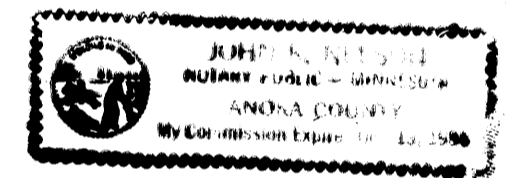 JOHN K. NELSON
NOTARY PUBLIC – MINNESOTA
ANOKA COUNTY
My Commission Expires 13, 1986